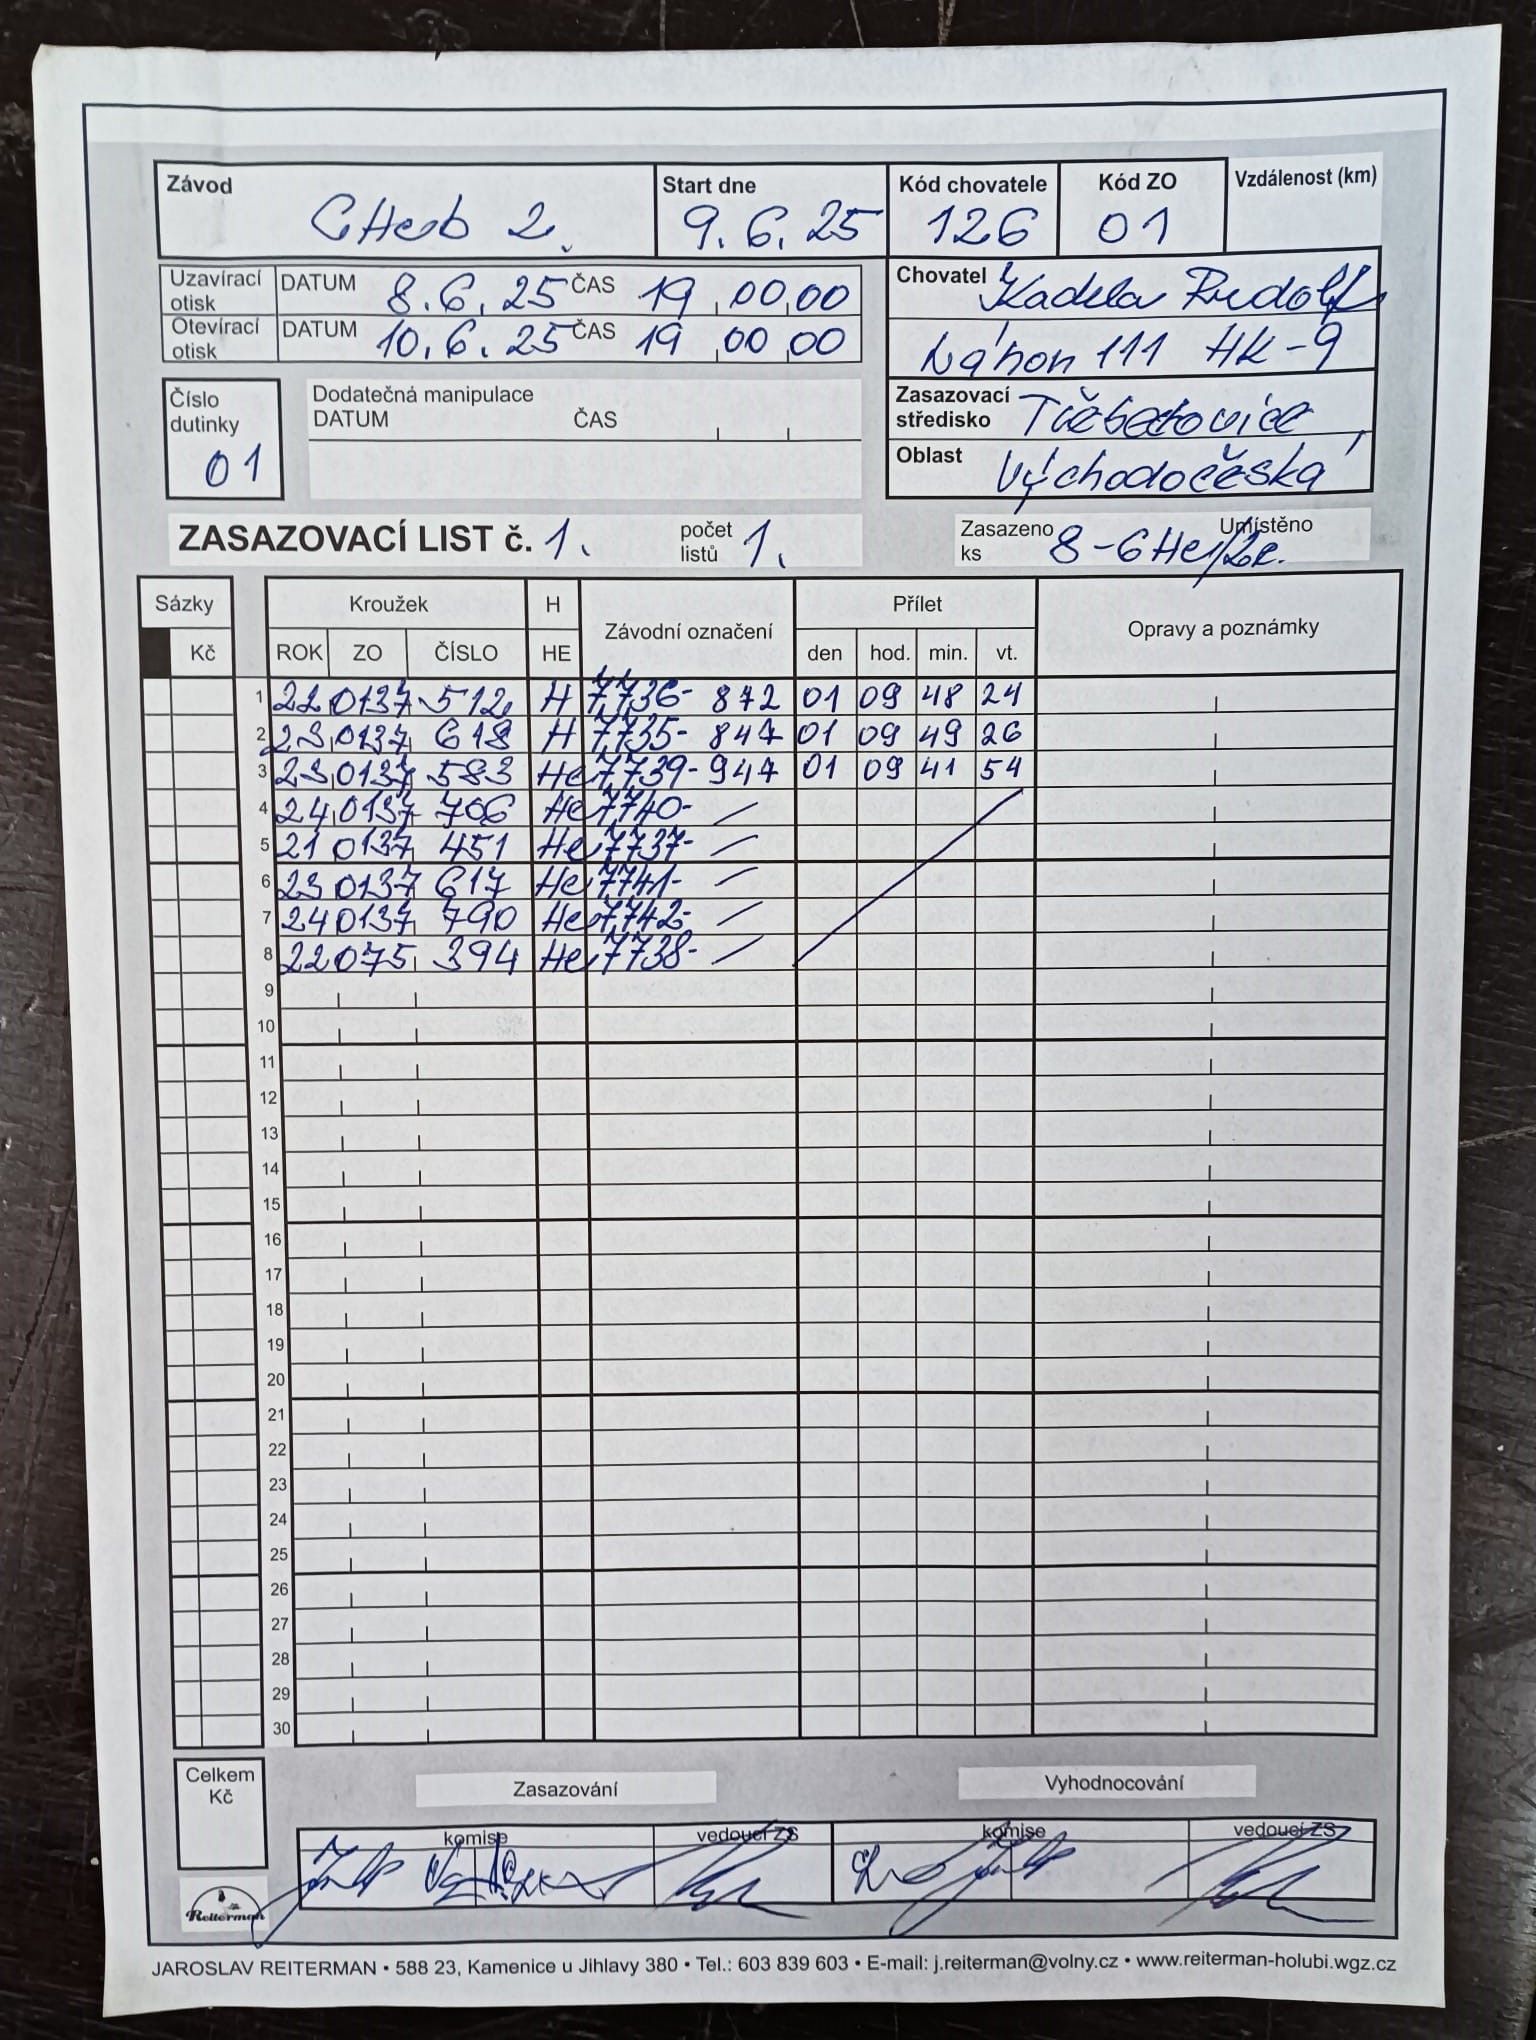 Závod Start dne Kód chovatele Kód ZO Vzdálenost (km)
CHeb 2. 9. 6. 25 126 01
Uzavírací otisk DATUM 8. 6. 25 ČAS 19 00 00
Otevírací otisk DATUM 10. 6. 25 ČAS 19 00 00
Chovatel Kadela Rudolf
Náhon 111 HK-9
Číslo dutinky 01
Dodatečná manipulace
DATUM ČAS
Zasazovací středisko Třebechovice
Oblast Východočeská
ZASAZOVACÍ LIST č. 1. počet listů 1. Zasazeno ks 8-6He/2 Umístěno
Sázky Kroužek H Závodní označení Přílet Opravy a poznámky
Kč ROK ZO ČÍSLO HE den hod. min. vt.
1 22 0137 512 H 7736- 872 01 09 48 24
2 23 0137 618 H 7735- 847 01 09 49 26
3 23 0137 583 He 7739- 947 01 09 41 54
4 24 0137 706 He 7740- —
5 21 0137 451 He 7737- —
6 23 0137 617 He 7741- —
7 24 0137 790 He 7742- —
8 22 075 394 He 7738- —
9
10
11
12
13
14
15
16
17
18
19
20
21
22
23
24
25
26
27
28
29
30
Celkem Kč Zasazování Vyhodnocování
komise vedoucí ZS komise vedoucí ZS
Reiterman
JAROSLAV REITERMAN • 588 23, Kamenice u Jihlavy 380 • Tel.: 603 839 603 • E-mail: j.reiterman@volny.cz • www.reiterman-holubi.wgz.cz